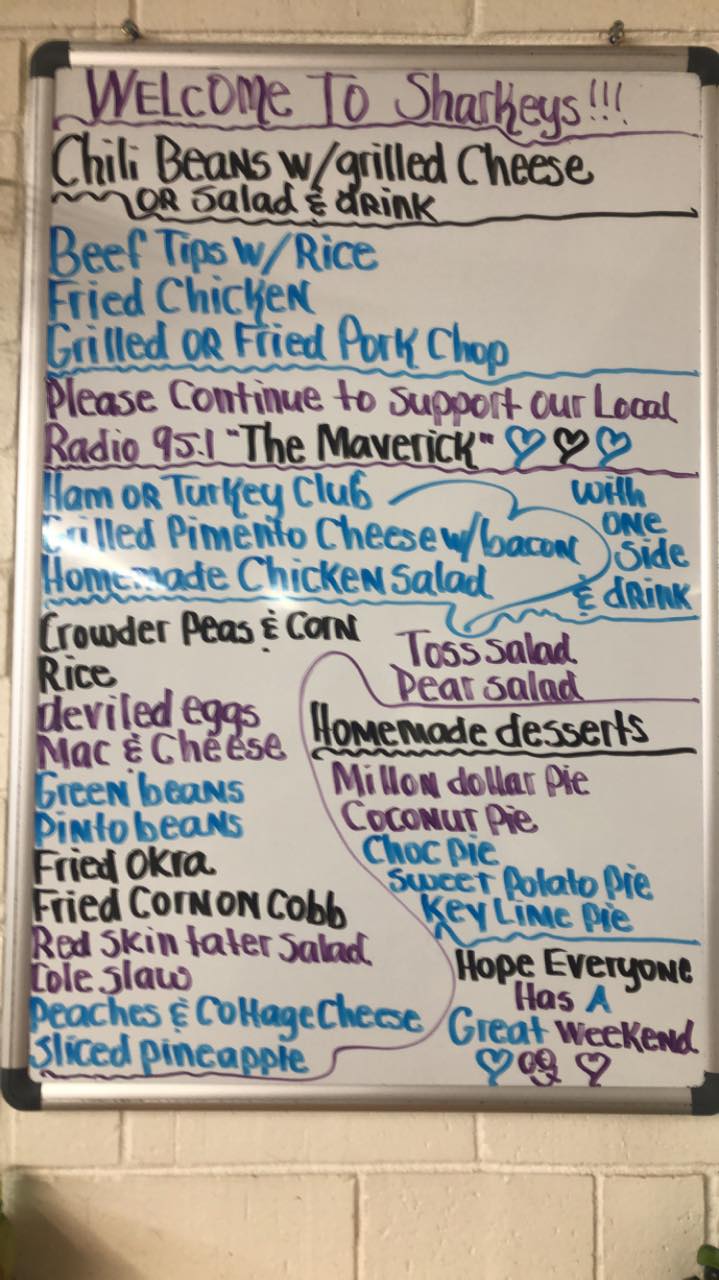 WELCOME To Sharkeys!!!
Chili Beans w/grilled Cheese
OR Salad & dRink
Beef Tips w/Rice
Fried Chicken
Grilled OR Fried Pork Chop
Please Continue to support our Local
Radio 95.1 "The Maverick"
Ham OR Turkey Club
Grilled Pimento Cheese w/bacon
Homemade Chicken Salad
with
one
Side
& dRink
Crowder Peas & Corn
Rice
deviled eggs
Mac & Cheese
Green beans
Pinto beans
Fried Okra
Fried Corn on Cobb
Red Skin tater Salad
Cole slaw
Peaches & Cottage Cheese
Sliced pineapple
Toss salad
Pear salad
Homemade desserts
Millon dollar Pie
Coconut Pie
Choc pie
Sweet Potato Pie
Key Lime Pie
Hope Everyone
Has A
Great Weekend